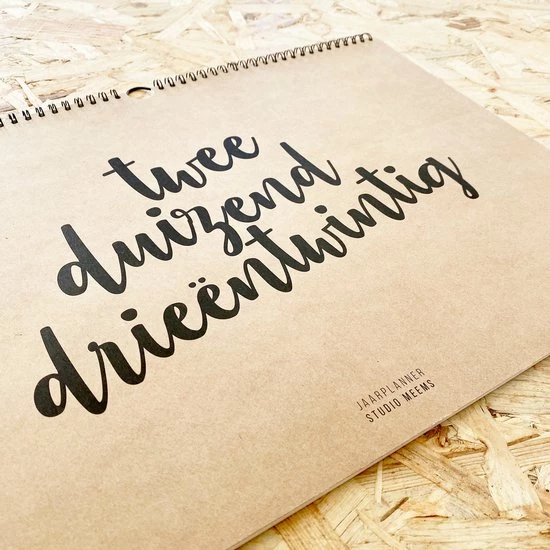 twee
duizend
drieëntwintig
JAARPLANNER
STUDIO MEEMS